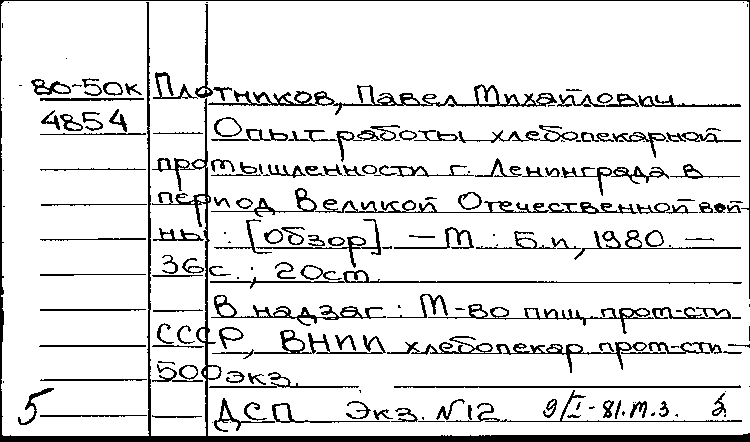 80-50к Плотников, Павел Михайлович
4854 Опыт работы хлебопекарной
промышленности г. Ленинграда в
период Великой Отечественной вой-
ны : [Обзор] — М : Б.и, 1980. —
36с. ; 20см.
В надзаг : М-во пищ. пром-сти
СССР, ВНИИ хлебопекар пром-сти —
500экз.
5 ДСП Экз. N12 9/I-81.м.з.